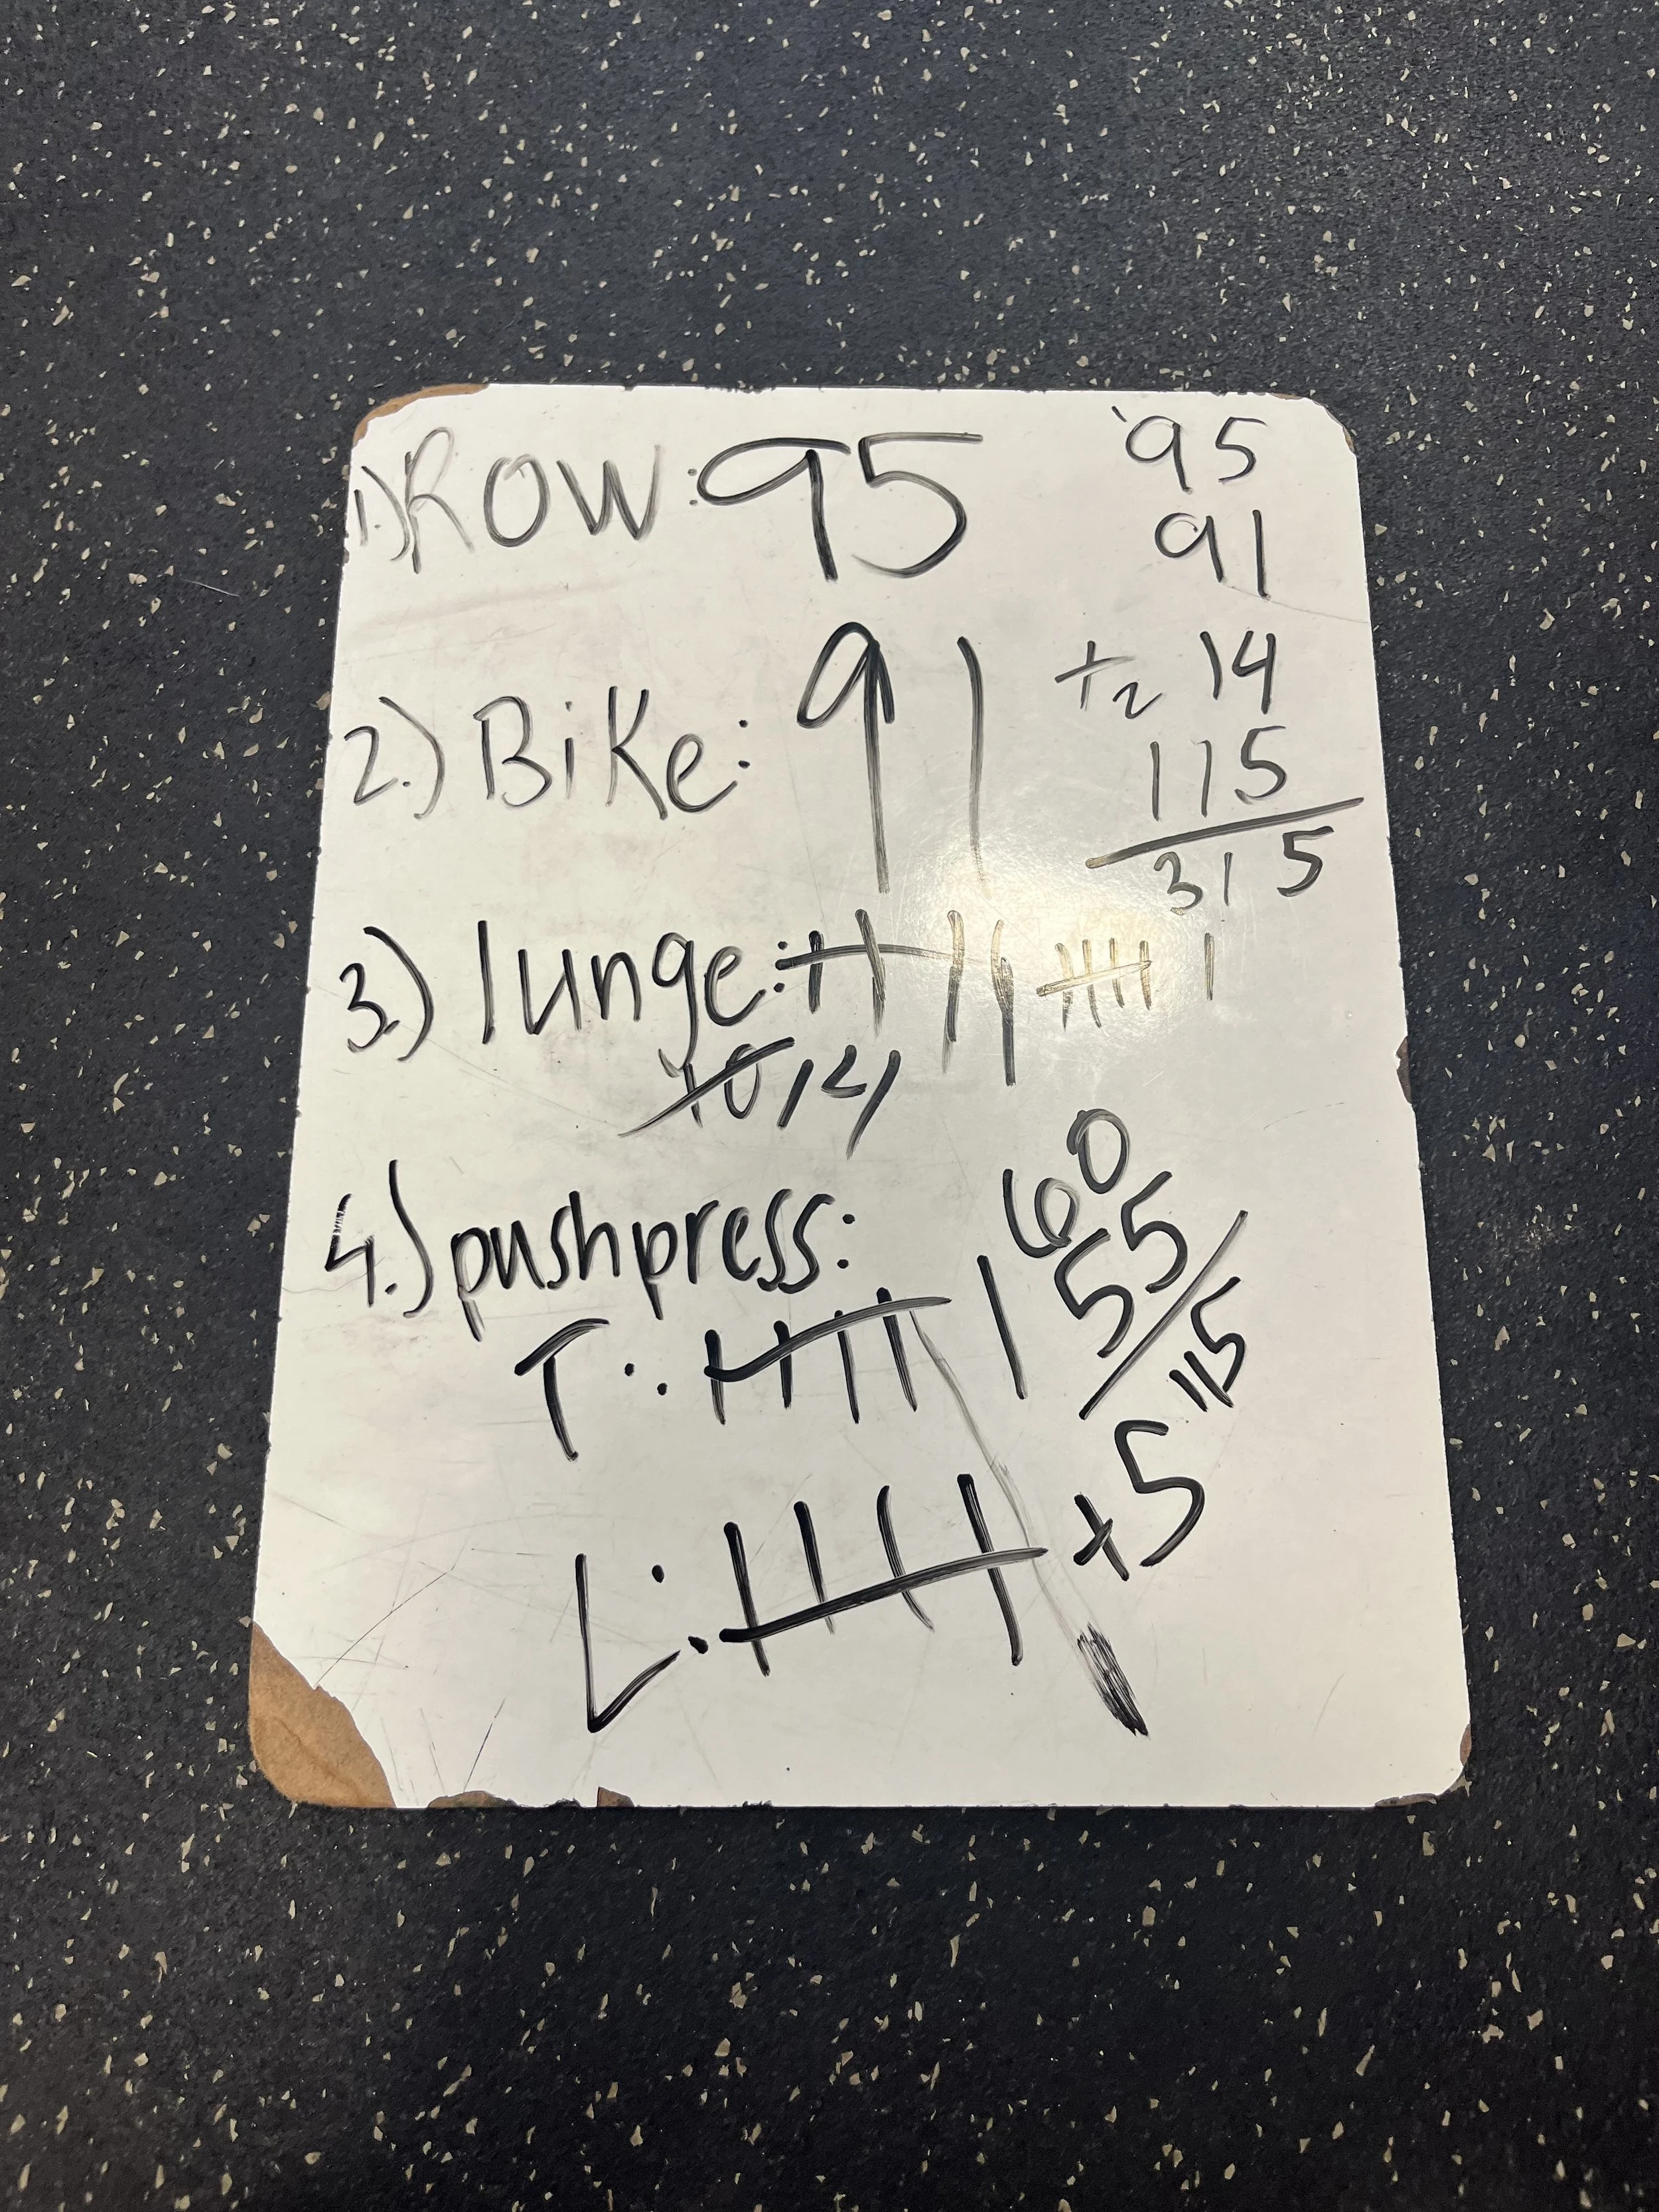 1.) ROW: 95
2.) BiKe: 91
3.) lunge:
10 14
4.) pushpress:
T:
L: +5
95
91
+2 14
115
315
60
55
115